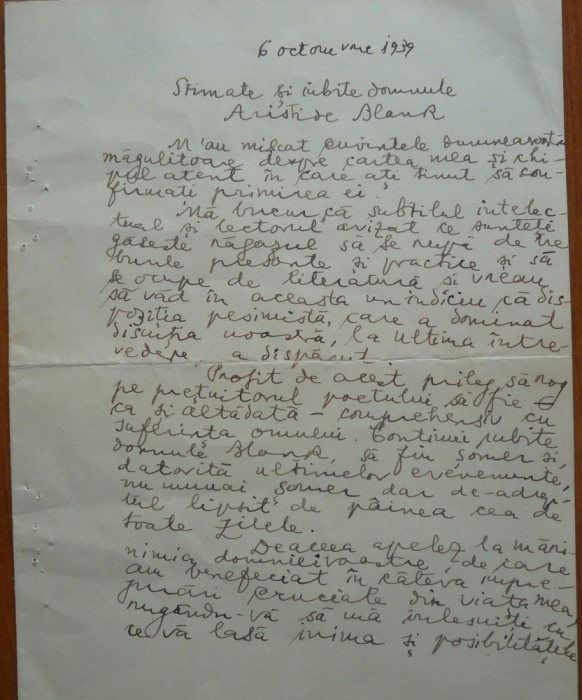 6 octomvrie 1939
Stimate și iubite domnule
Aristide Blank
M'au mișcat cuvintele dumneavoastă
măgulitoare despre cartea mea și chi-
pul atent în care ați ținut să con-
firmați primirea ei.
Mă bucur că subtilul intelec-
tual și lectorul avizat ce sunteți
găsește răgazul să se rupă de tre
burile presante și practice și să
se ocupe de literatură și vreau
să văd în aceasta un indiciu că dis-
poziția pesimistă, care a dominat
discuția noastră, la ultima între-
vedere, a dispărut.
Profit de acest prilej să rog
pe prețuitorul poetului să fie
ca și altădată – comprehensiv cu
suferința omului. Continui iubite
domnule Blank, să fiu șomer și,
datorită ultimelor evenimente,
nu numai șomer dar de-adrep-
tul lipsit de pâinea cea de
toate zilele.
Deaceea apelez la mări-
nimia domnieivoastre, de care
am beneficiat în câteva împre-
jurări cruciale din viața mea,
rugându-vă să mă înlesniți cu
ce vă lasă inima și posibilitățile